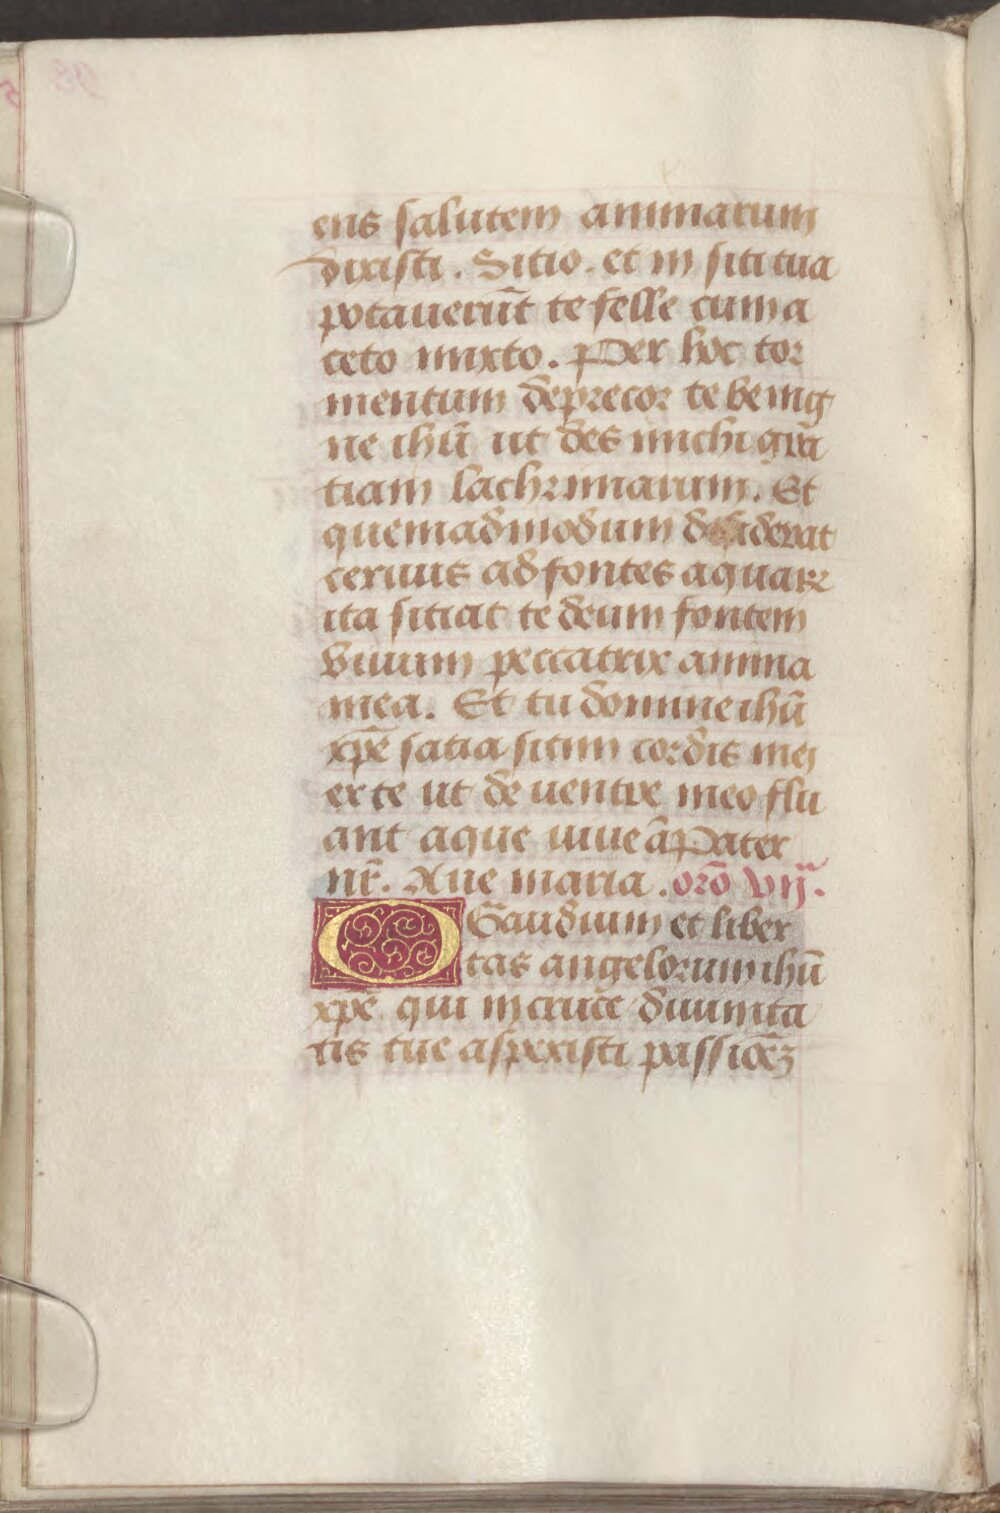 ens salutem animarum
dixisti. Sitio. et in siti tua
potauerūt te felle cum a
ceto mixto. Per hoc tor
mentum deprecor te benig
ne ihū ut des michi gra
tiam lachrimarum. Et
quemadmodum desiderat
ceruus ad fontes aquarꝝ
ita sitiat te deum fontem
viuum peccatrix anima
mea. Et tu domine ihū
xpē satia sitim cordis mei
ex te ut de ventre meo flu
ant aque viue ā Pater
nr̄. Aue maria. orō vij.
O Gaudium et liber
tas angelorum ihū
xpē qui in cruce diuinita
tis tue aspexisti passiōeʒ